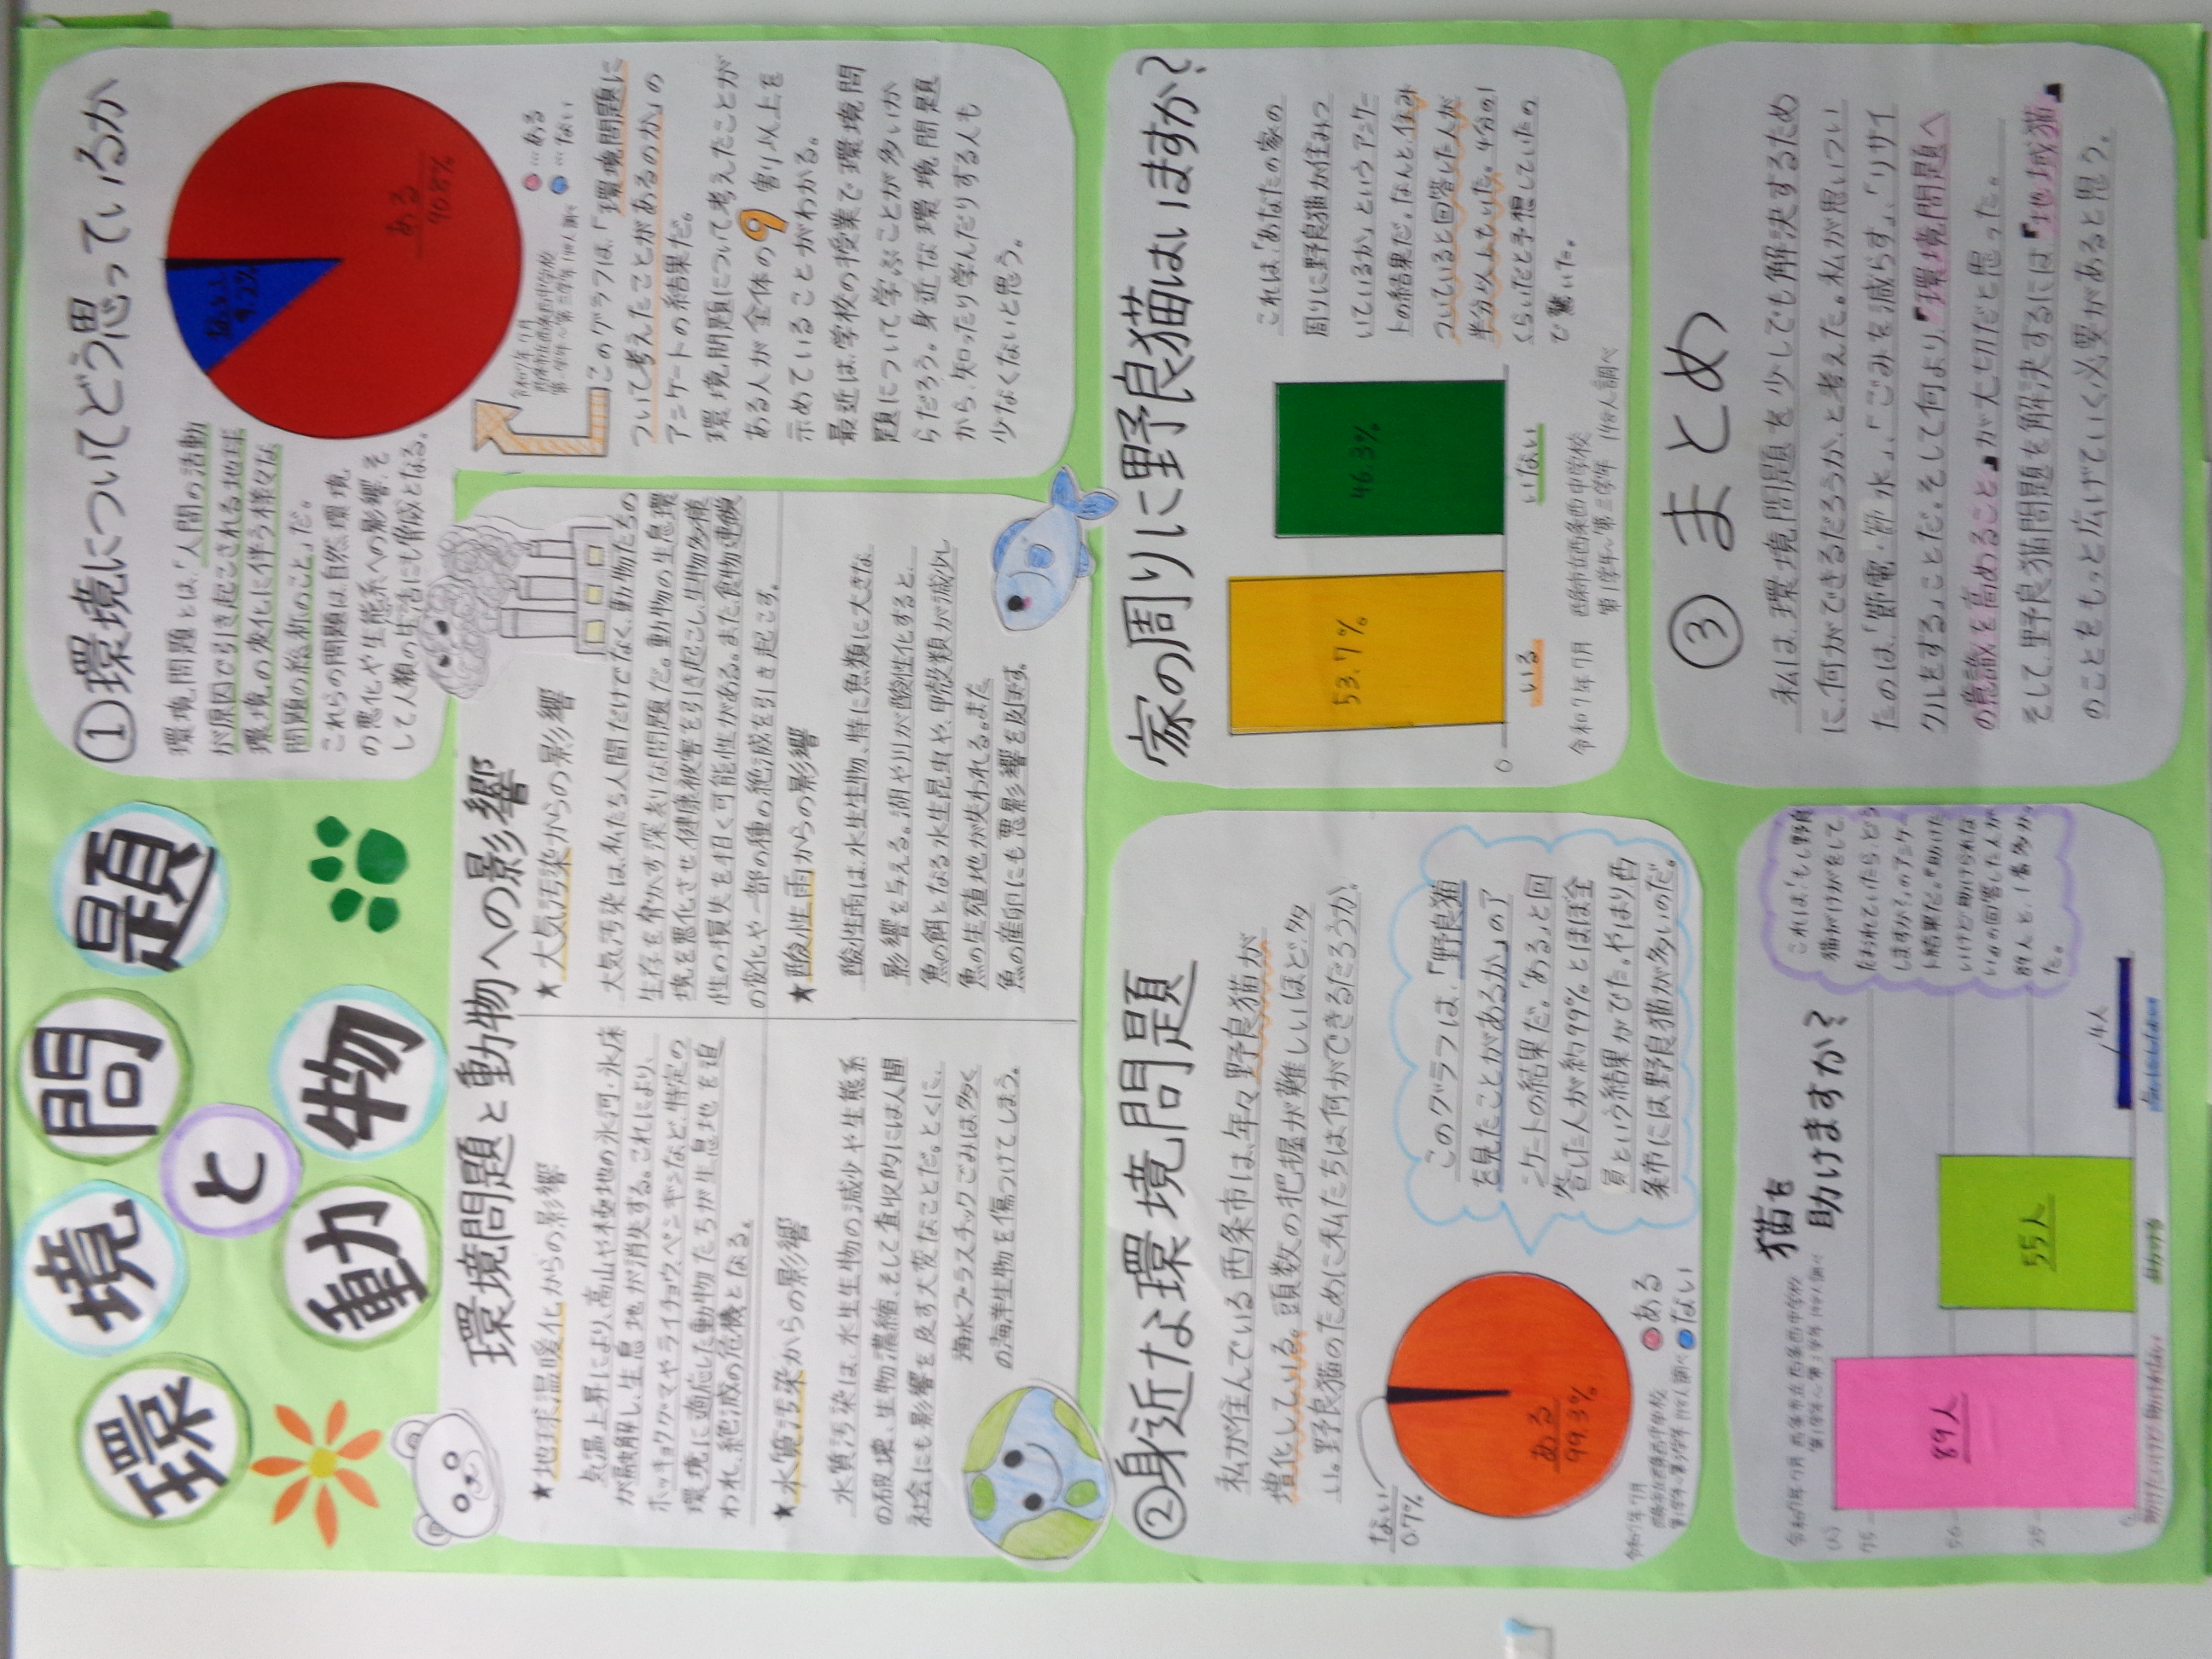 環境問題
と
動物
①環境についてどう思っているか
環境問題とは、「人間の活動
が原因で引き起こされる地球
環境の変化に伴う様々な
問題の総称のこと」だ。
これらの問題は自然環境
の悪化や生態系への影響、そ
して人類の生活にも脅威となる。
ある
90.8%
ない
9.2%
…ある
…ない
令和7年7月
西条市立西条西中学校
このグラフは、「環境問題に
ついて考えたことがあるのか」の
アンケートの結果だ。
環境問題について考えたことが
ある人が全体の9割以上を
示めていることがわかる。
最近は、学校の授業で環境問
題について学ぶことが多いか
らだろう。身近な環境問題
から、知ったり学んだりする人も
少なくないと思う。
環境問題と動物への影響
★地球温暖化からの影響
気温上昇により、高山や極地の氷河・氷床
が融解し、生息地が消失する。これにより、
ホッキョクグマやライチョウ、ペンギンなど、特定の
環境に適応した動物たちが生息地を追
われ、絶滅の危機となる。
★大気汚染からの影響
大気汚染は、私たち人間だけでなく、動物たちの
生存を脅かす深刻な問題だ。動物の生息環
境を悪化させ、健康被害を引き起こし、生物多様
性の損失を招く可能性がある。また、食物連鎖
の変化や一部の種の絶滅を引き起こす。
★水質汚染からの影響
水質汚染は、水生生物の減少や生態系
の破壊、生物濃縮、そして最終的には人間
社会にも影響を及ぼす大変なことだ。とくに、
海水プラスチックごみは多く
の海洋生物を傷つけてしまう。
★酸性雨からの影響
酸性雨は、水生生物、特に魚類に大きな
影響を与える。湖や川が酸性化すると、
魚の餌となる水生昆虫や、甲殻類が減少し
魚の生殖地が失われる。また
魚の産卵にも悪影響を及ぼす。
②身近な環境問題
私が住んでいる西条市は、年々野良猫が
増化している。頭数の把握が難しいほど、多
い。野良猫のために私たちは何ができるだろうか。
ない
0.7%
ある
99.3%
令和7年7月
西条市立西条西中学校
ある
ない
このグラフは、「野良猫
を見たことがあるか」のア
ンケートの結果だ。「ある」と回
答した人が約99%とほぼ全
員という結果がでた。やはり西
条市には野良猫が多いのだ。
家の周りに野良猫はいますか?
53.7%
46.3%
0
いる
いない
令和7年7月 西条市立西条西中学校
これは、「あなたの家の
周りに野良猫が住みつ
いているか」というアンケー
トの結果だ。なんと、住み
ついていると回答した人が
半分以上もいた。4分の1
くらいだと予想していたの
で驚いた。
猫を
助けますか?
令和7年7月 西条市立西条西中学校
(人)
75
50
25
0
89人
55人
4人
助けたいけど助けれない
助ける
これは、「もし野良
猫がけがをして、
たおれていたら、どう
しますか?」のアンケー
ト結果だ。「助けた
いけど助けられな
い」の回答した人が
89人と、1番多かっ
た。
③まとめ
私は、環境問題を少しでも解決するため
に、何ができるだろうか、と考えた。私が思いつい
たのは、「節電・節水」、「ごみを減らす」、「リサイ
クルをする」ことだ。そして何より、『環境問題へ
の意識を高めること』が大切だと思った。
そして、野良猫問題を解決するには『地域猫』
のことをもっと広げていく必要があると思う。